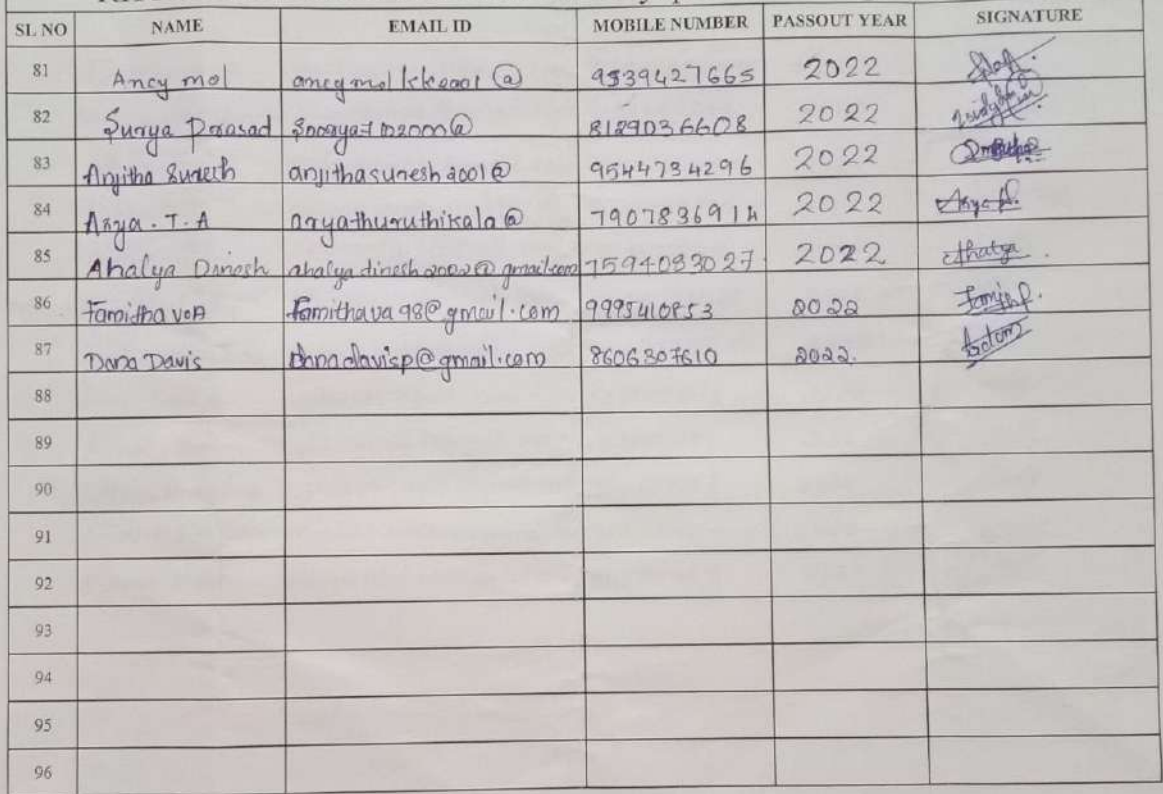 SL NO NAME EMAIL ID MOBILE NUMBER PASSOUT YEAR SIGNATURE
81 Ancy mol 9539427665 2022
82 Surya Prasad 8129036608 2022
83 Anjitha Suresh anjithasuresh2001@ 9544734296 2022
84 Arya . T. A aryathuruthikala@ 2022 Arya
85 Ahalya Dinesh ahalyadinesh2002@gmail.com 7594083027 2022
86 Famitha V.A famithava98@gmail.com 9995410853 2022
87 Dona Davis 8606307610 2022.
88
89
90
91
92
93
94
95
96